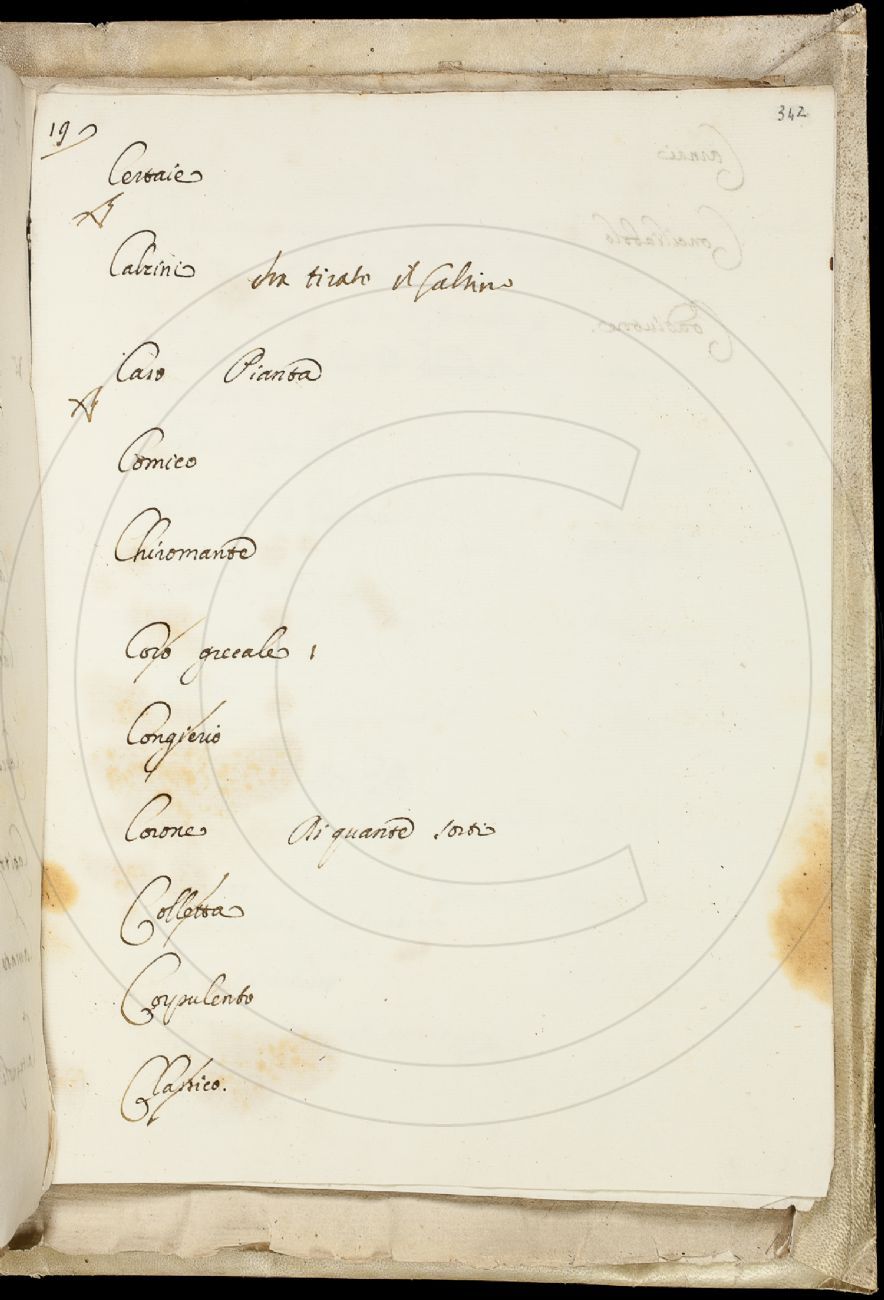 19
342
Certaie
Calzini ha tirato il Calzino
Caro Pianta
Comico
Chiromante
Coro grecale 1
Congierio
Corone di quante sorti
Colletta
Corpulento
Classico.